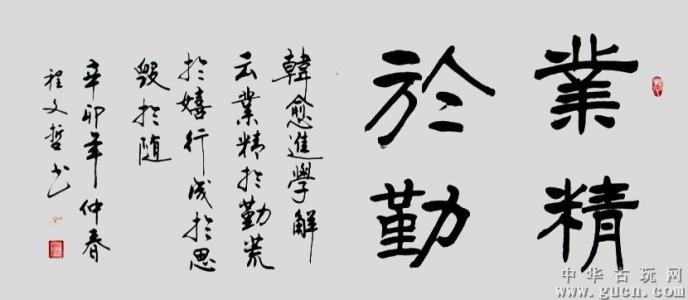 業精
於勤
韓愈進學解
云業精於勤荒
於嬉行成於思
毀於随
辛卯年仲春
程文哲书
中华古玩网
www.gucn.com